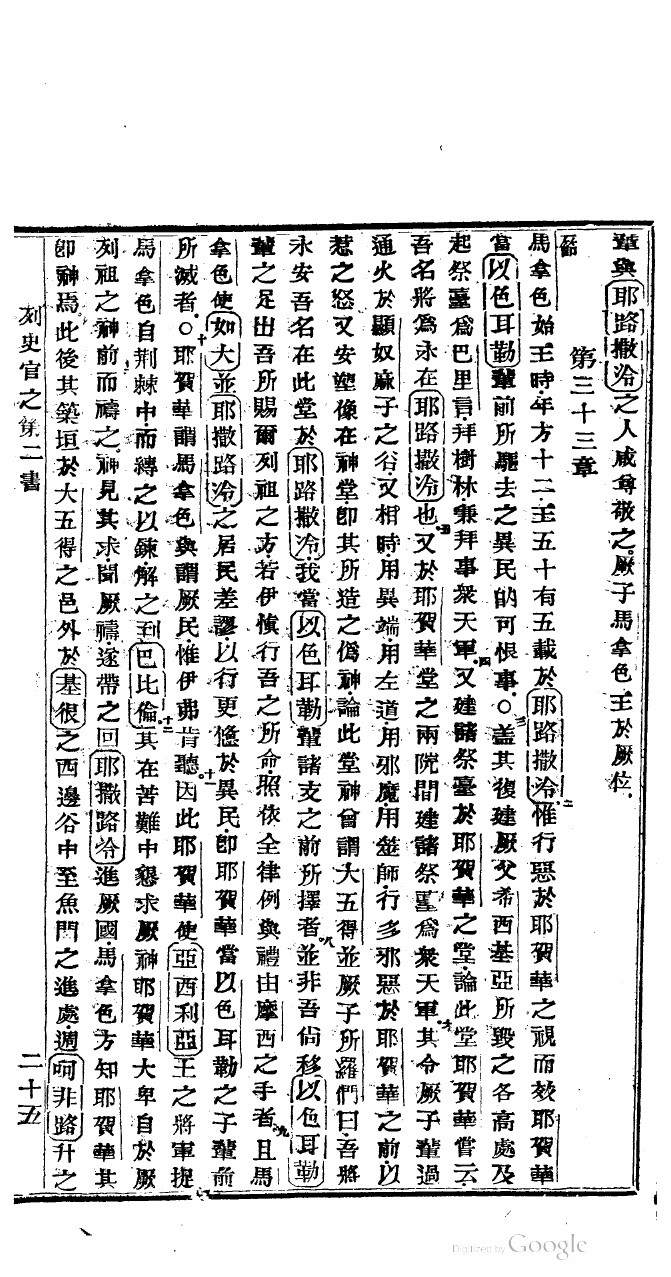 輩與耶路撒冷之人咸尊敬之厥子馬拿色王於厥位
第三十三章
馬拿色始王時年方十二王五十有五載於耶路撒冷二惟行惡於耶賀華之視而效耶賀華
當以色耳勒輩前所驅去之異民的可恨事○三蓋其復建厥父希西基亞所毀之各高處及
起祭臺為巴里言拜樹林兼拜事衆天軍四又建諸祭臺於耶賀華之堂論此堂耶賀華嘗云
吾名將為永在耶路撒冷也五又於耶賀華堂之兩院間建諸祭臺為衆天軍六其令厥子輩過
通火於顯奴麻子之谷又相時用異端用左道用邪魔用筮師行多邪惡於耶賀華之前以
惹之怒又安塑像在神堂卽其所造之偽神論此堂神曾謂大五得並厥子所羅們曰吾將
永安吾名在此堂於耶路撒冷我當以色耳勒輩諸支之前所擇者八並非吾尙移以色耳勒
輩之足出吾所賜爾列祖之方若伊愼行吾之所命照依全律例與禮由摩西之手者九且馬
拿色使如大並耶撒路冷之居民差謬以行更惡於異民卽耶賀華當以色耳勒之子輩前
所滅者○十耶賀華謂馬拿色與謂厥民惟伊弗肯聽十一因此耶賀華使亞西利亞王之將軍捉
馬拿色自荆棘中而縛之以鍊解之到巴比倫十二其在苦難中懇求厥神耶賀華大卑自於厥
列祖之神前而禱之神見其求聞厥禱遂帶之回耶撒路冷進厥國馬拿色方知耶賀華其
卽神焉此後其築垣於大五得之邑外於基很之西邊谷中至魚門之進處週呵非路升之
列史官之第二書
二十五
Digitized by Google